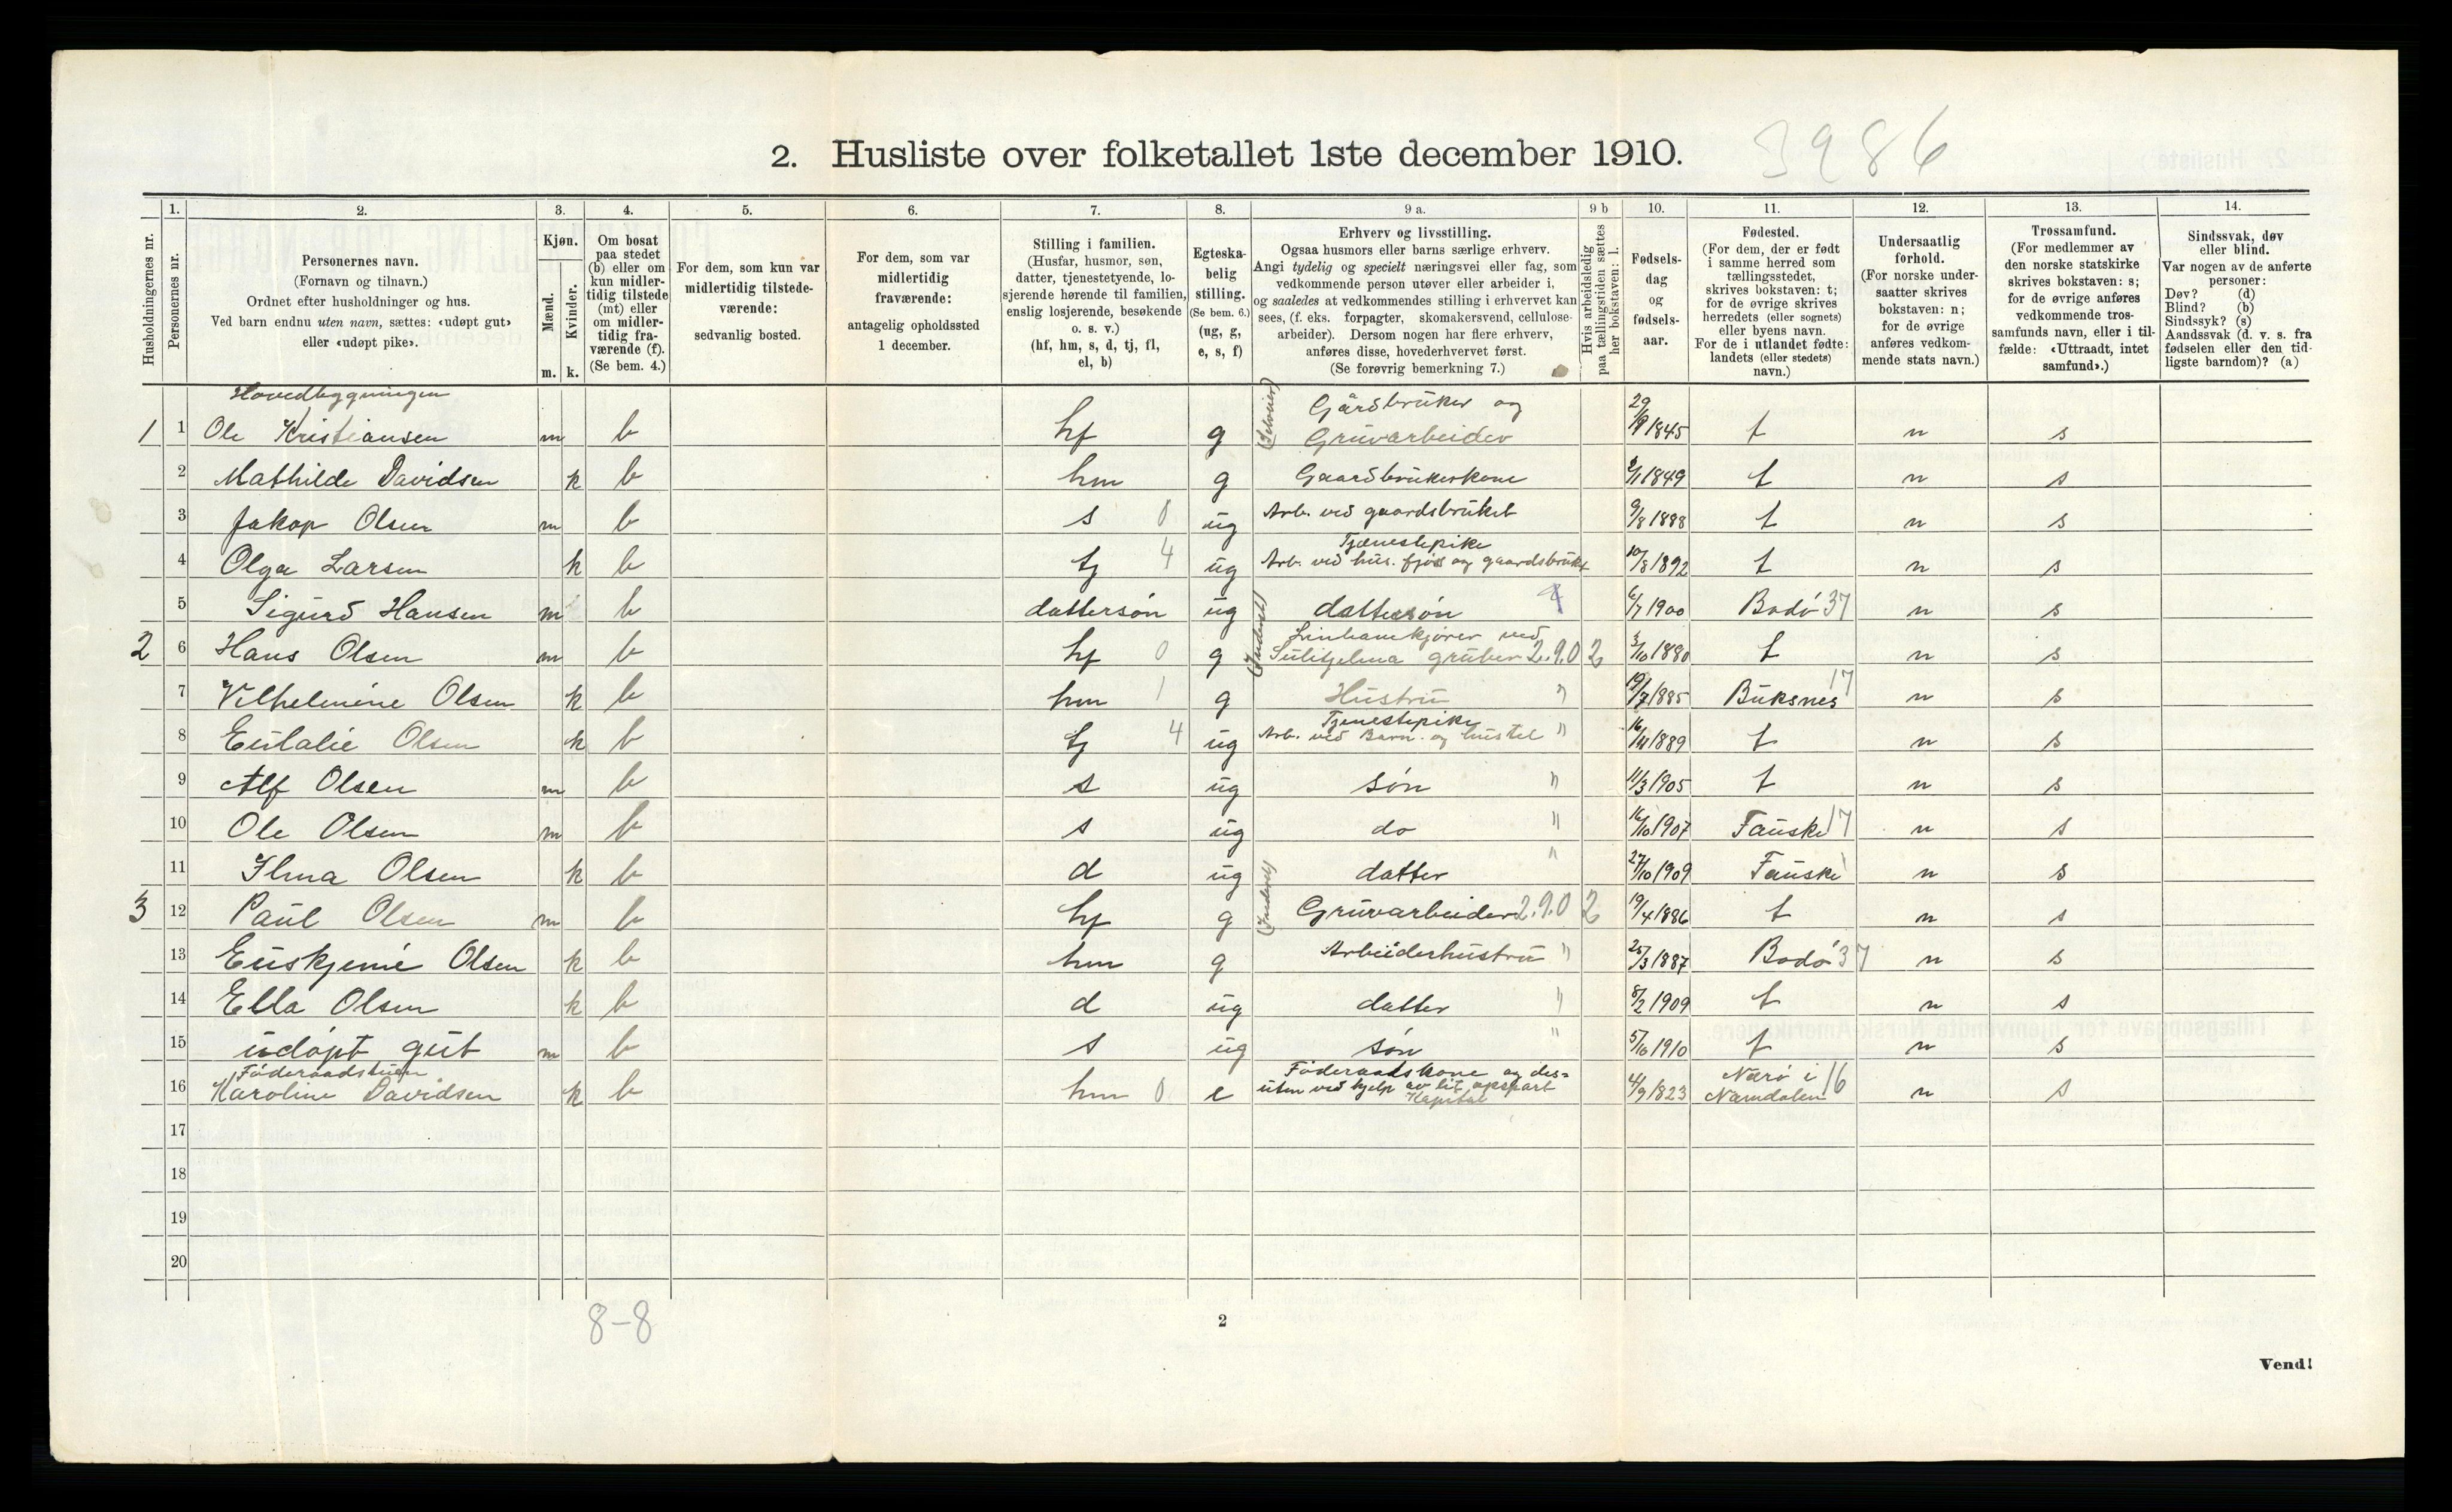 2. Husliste over folketallet 1ste december 1910.
3986
Husholdningernes nr.
1.
Personernes nr.
2.
Personernes navn.
(Fornavn og tilnavn.)
Ordnet efter husholdninger og hus.
Ved barn endnu uten navn, sættes: «udøpt gut»
eller «udøpt pike».
3.
Kjøn.
Mænd.
Kvinder.
m. k.
4.
Om bosat
paa stedet
(b) eller om
kun midler-
tidig tilstede
(mt) eller
om midler-
tidig fra-
værende (f).
(Se bem. 4.)
5.
For dem, som kun var
midlertidig tilstede-
værende:
sedvanlig bosted.
6.
For dem, som var
midlertidig
fraværende:
antagelig opholdssted
1 december.
7.
Stilling i familien.
(Husfar, husmor, søn,
datter, tjenestetyende, lo-
sjerende hørende til familien,
enslig losjerende, besøkende
o. s. v.)
(hf, hm, s, d, tj, fl,
el, b)
8.
Egteska-
belig
stilling.
(Se bem. 6.)
(ug, g,
e, s, f)
9 a.
Erhverv og livsstilling.
Ogsaa husmors eller barns særlige erhverv.
Angi tydelig og specielt næringsvei eller fag, som
vedkommende person utøver eller arbeider i,
og saaledes at vedkommendes stilling i erhvervet kan
sees, (f. eks. forpagter, skomakersvend, cellulose-
arbeider). Dersom nogen har flere erhverv,
anføres disse, hovederhvervet først.
(Se forøvrig bemerkning 7.)
9 b
Hvis arbeidsledig
paa tællingstiden sættes
her bokstaven: l.
10.
Fødsels-
dag
og
fødsels-
aar.
11.
Fødested.
(For dem, der er født
i samme herred som
tællingsstedet,
skrives bokstaven: t;
for de øvrige skrives
herredets (eller sognets)
eller byens navn.
For de i utlandet fødte:
landets (eller stedets)
navn.)
12.
Undersaatlig
forhold.
(For norske under-
saatter skrives
bokstaven: n;
for de øvrige
anføres vedkom-
mende stats navn.)
13.
Trossamfund.
(For medlemmer av
den norske statskirke
skrives bokstaven: s;
for de øvrige anføres
vedkommende tros-
samfunds navn, eller i til-
fælde: «Uttraadt, intet
samfund».)
14.
Sindssvak, døv
eller blind.
Var nogen av de anførte
personer:
Døv? (d)
Blind? (b)
Sindssyk? (s)
Aandssvak (d. v. s. fra
fødselen eller den tid-
ligste barndom)? (a)
Hovedbygningen
1 1 Ole Kristiansen m b hf g (Selveier) Gårdbruker og Gruvarbeider 1845 t n s
2 Mathilde Davidsen k b hm g Gaardbrukerkone 1849 t n s
3 Jakop Olsen m b s 0 ug Arb. ved gaardsbruket 9/8 1888 t n s
4 Olga Larsen k b tj 4 ug Tjenestepike Arb. ved hus. fjøs og gaardsbruk 10/8 1892 t n s
5 Sigurd Hansen m b dattersøn ug dattersøn 4 6/7 1900 Bodö 37 n s
2 6 Hans Olsen m b hf 0 g Linbanekjører ved Sulitjelma gruber 2.9.0 2 3/10 1880 t n s
7 Vilhelmine Olsen k b hm 1 g Hustru " 19/7 1885 Buksnes 17 n s
8 Eulalie Olsen k b tj 4 ug Tjenestepike Arb. ved Barn. og hustel " 16/11 1889 t n s
9 Alf Olsen m b s ug søn " 11/3 1905 t n s
10 Ole Olsen m b s ug do " 16/10 1907 Fauske 17 n s
11 Ilma Olsen k b d ug datter " 27/10 1909 Fauske n s
3 12 Paul Olsen m b hf g Gruvarbeider 2.9.0 2 19/4 1886 t n s
13 Euskjenié Olsen k b hm g Arbeiderhustru " 25/3 1887 Bodö 37 n s
14 Ella Olsen k b d ug datter " 8/2 1909 t n s
15 udøpt gut m b s ug søn " 5/10 1910 t n s
Föderaadstuen
16 Karoline Davidsen k b hm 0 e Föderaadskone og des= uten ved hjelp av lit opspart Kapital 4/9 1823 Nærö i Namdalen 16 n s
17
18
19
20
8-8
2
Vend!